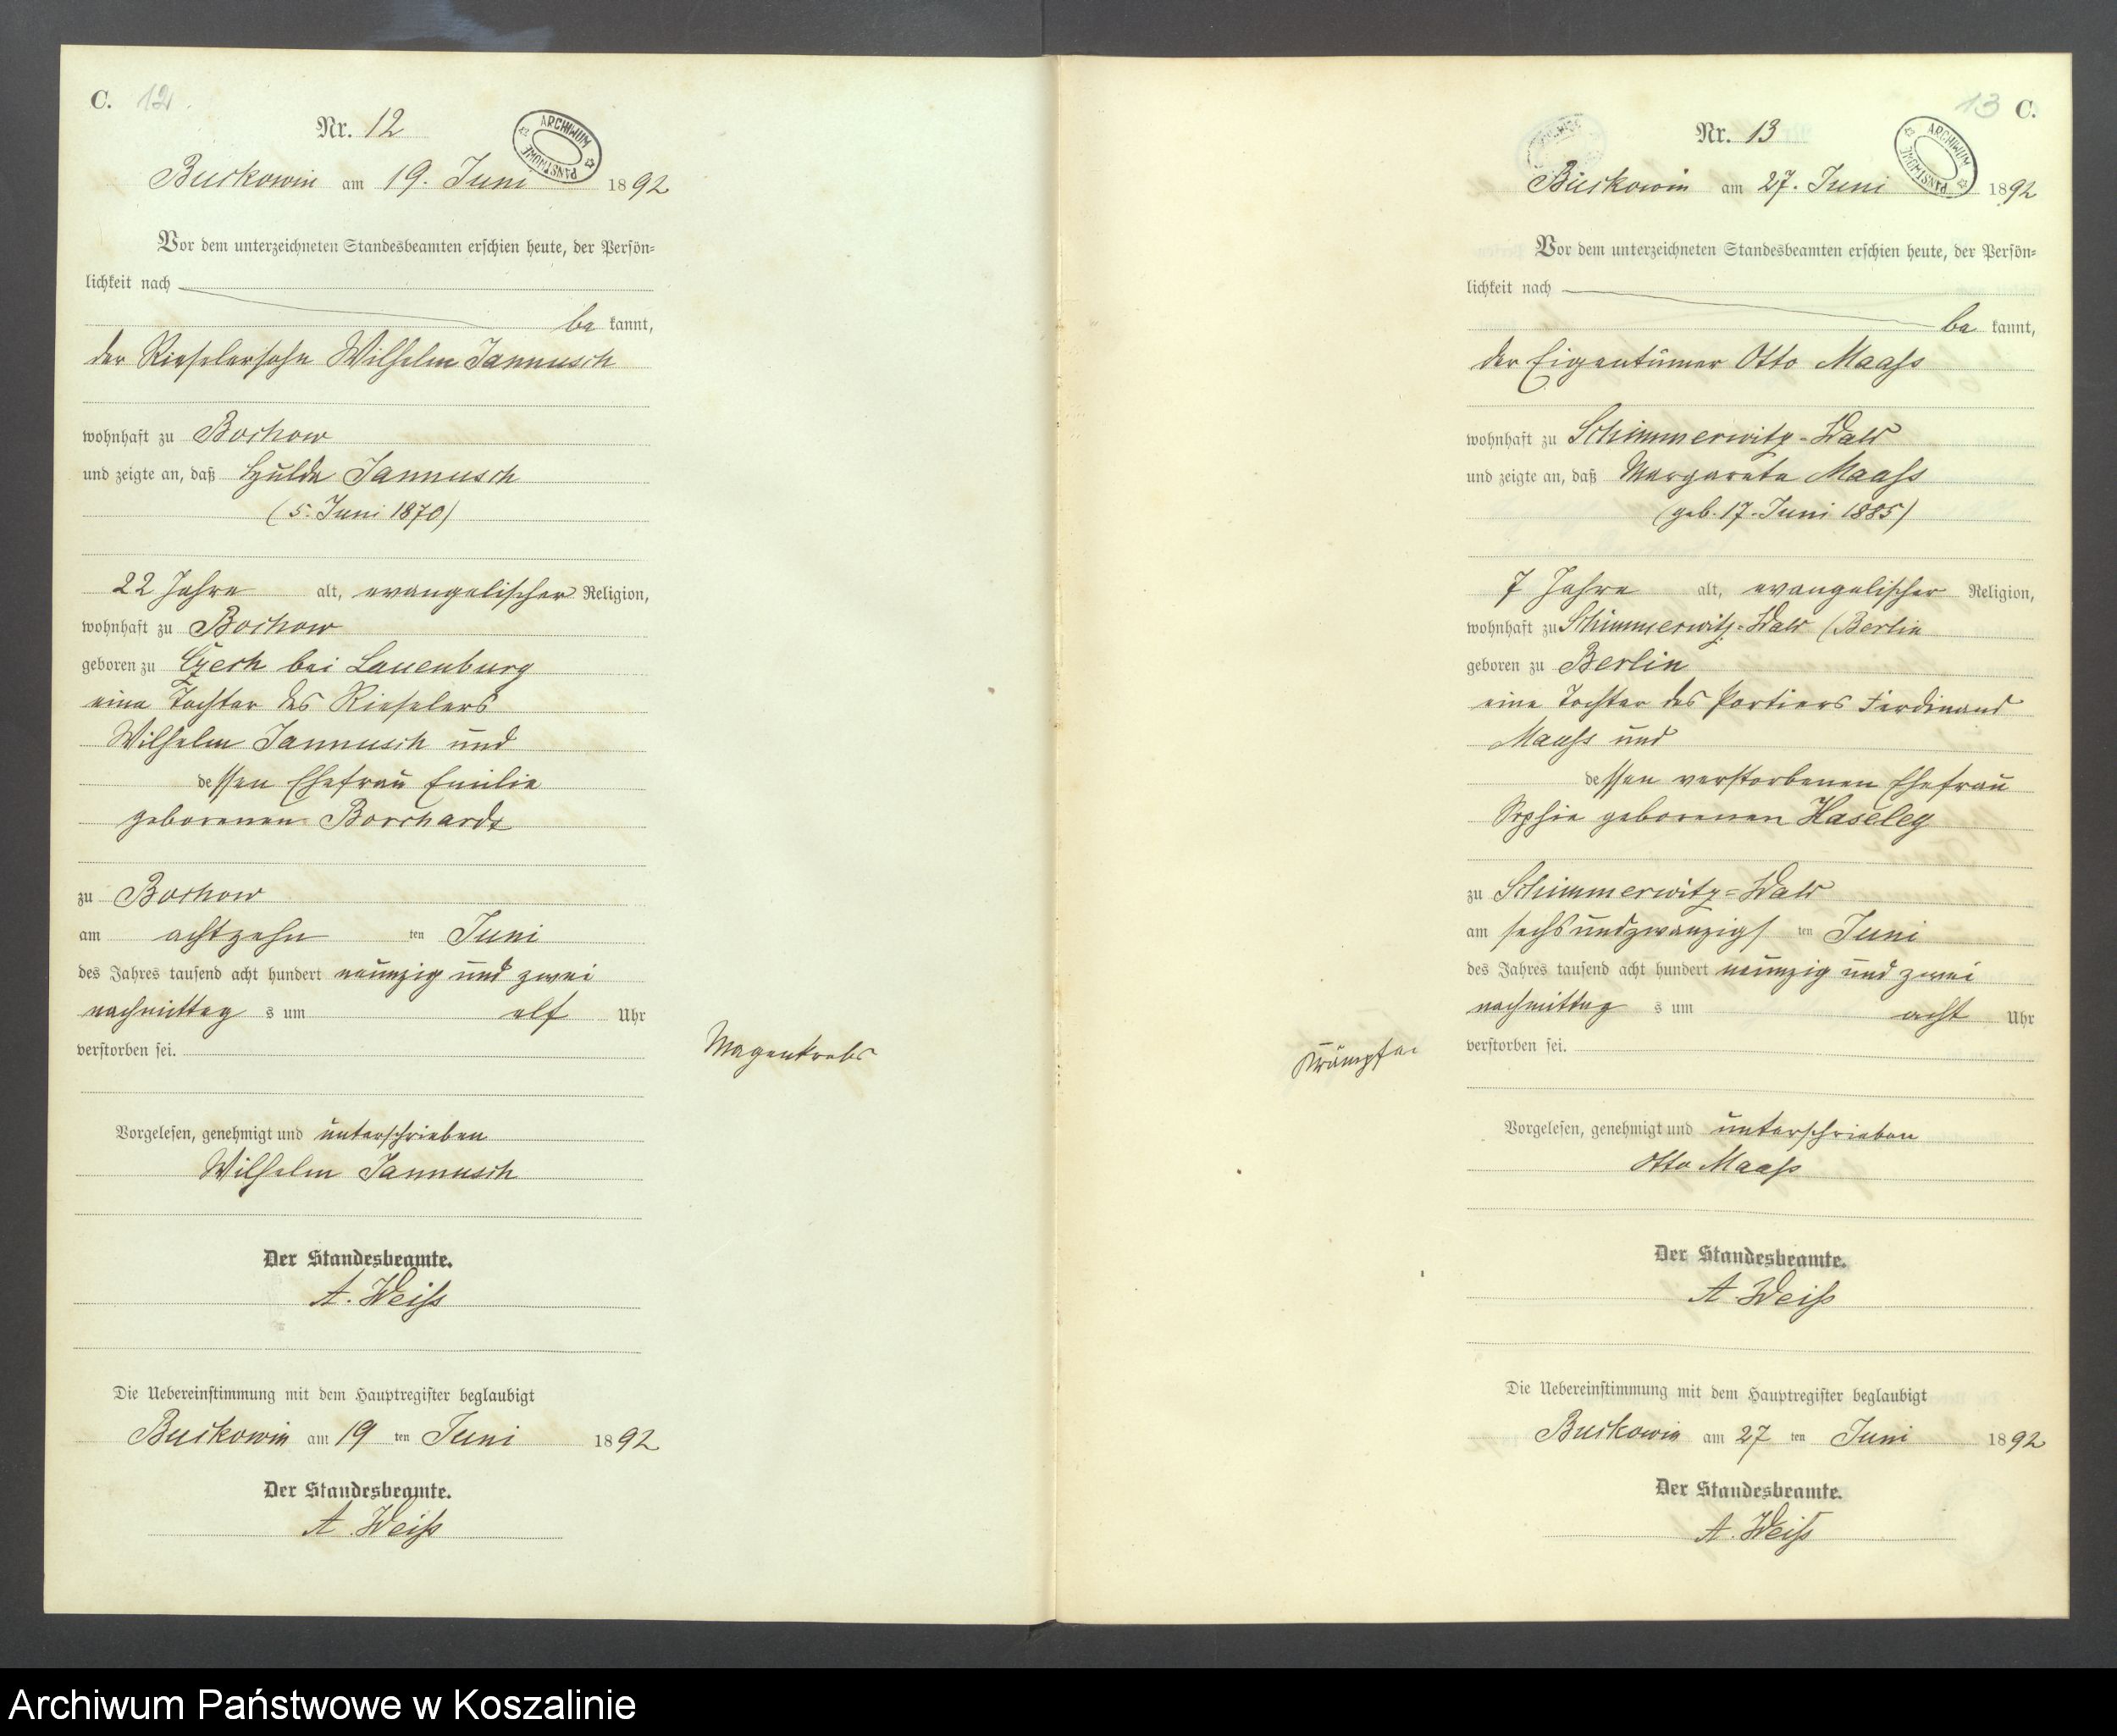 C. 12.
Nr. 12
ARCHIWUM PAŃSTWOWE
Buckowin am 19. Juni 1892
Vor dem unterzeichneten Standesbeamten erschien heute, der Persön-
lichkeit nach
be kannt,
der Rieselersohn Wilhelm Jannusch
wohnhaft zu Bochow
und zeigte an, daß Hulda Jannusch
(5. Juni 1870)
22 Jahre alt, evangelischer Religion,
wohnhaft zu Bochow
geboren zu Czech bei Lauenburg
eine Tochter des Rieselers
Wilhelm Jannusch und
dessen Ehefrau Emilie
geborenen Borchardt
zu Bochow
am achtzehn ten Juni
des Jahres tausend acht hundert neunzig und zwei
nachmittag s um elf Uhr
verstorben sei.
Magenkrebs
Vorgelesen, genehmigt und unterschrieben
Wilhelm Jannusch
Der Standesbeamte.
A. Weiß
Die Uebereinstimmung mit dem Hauptregister beglaubigt
Buckowin am 19 ten Juni 1892
Der Standesbeamte.
A. Weiß
13 C.
Nr. 13
ARCHIWUM PAŃSTWOWE
Buckowin am 27. Juni 1892
Vor dem unterzeichneten Standesbeamten erschien heute, der Persön-
lichkeit nach
be kannt,
der Eigentümer Otto Maaß
wohnhaft zu Schimmerwitz-Wald
und zeigte an, daß Margarete Maaß
(geb. 17. Juni 1885)
7 Jahre alt, evangelischer Religion,
wohnhaft zu Schimmerwitz-Wald (Berlin
geboren zu Berlin
eine Tochter des Portiers Ferdinand
Maaß und
dessen verstorbenen Ehefrau
Sophie geborenen Haseley
zu Schimmerwitz-Wald
am sechsundzwanzigs ten Juni
des Jahres tausend acht hundert neunzig und zwei
nachmittag s um acht Uhr
verstorben sei.
Krämpfe
Vorgelesen, genehmigt und unterschrieben
Otto Maaß
Der Standesbeamte.
A. Weiß
Die Uebereinstimmung mit dem Hauptregister beglaubigt
Buckowin am 27 ten Juni 1892
Der Standesbeamte.
A. Weiß
Archiwum Państwowe w Koszalinie